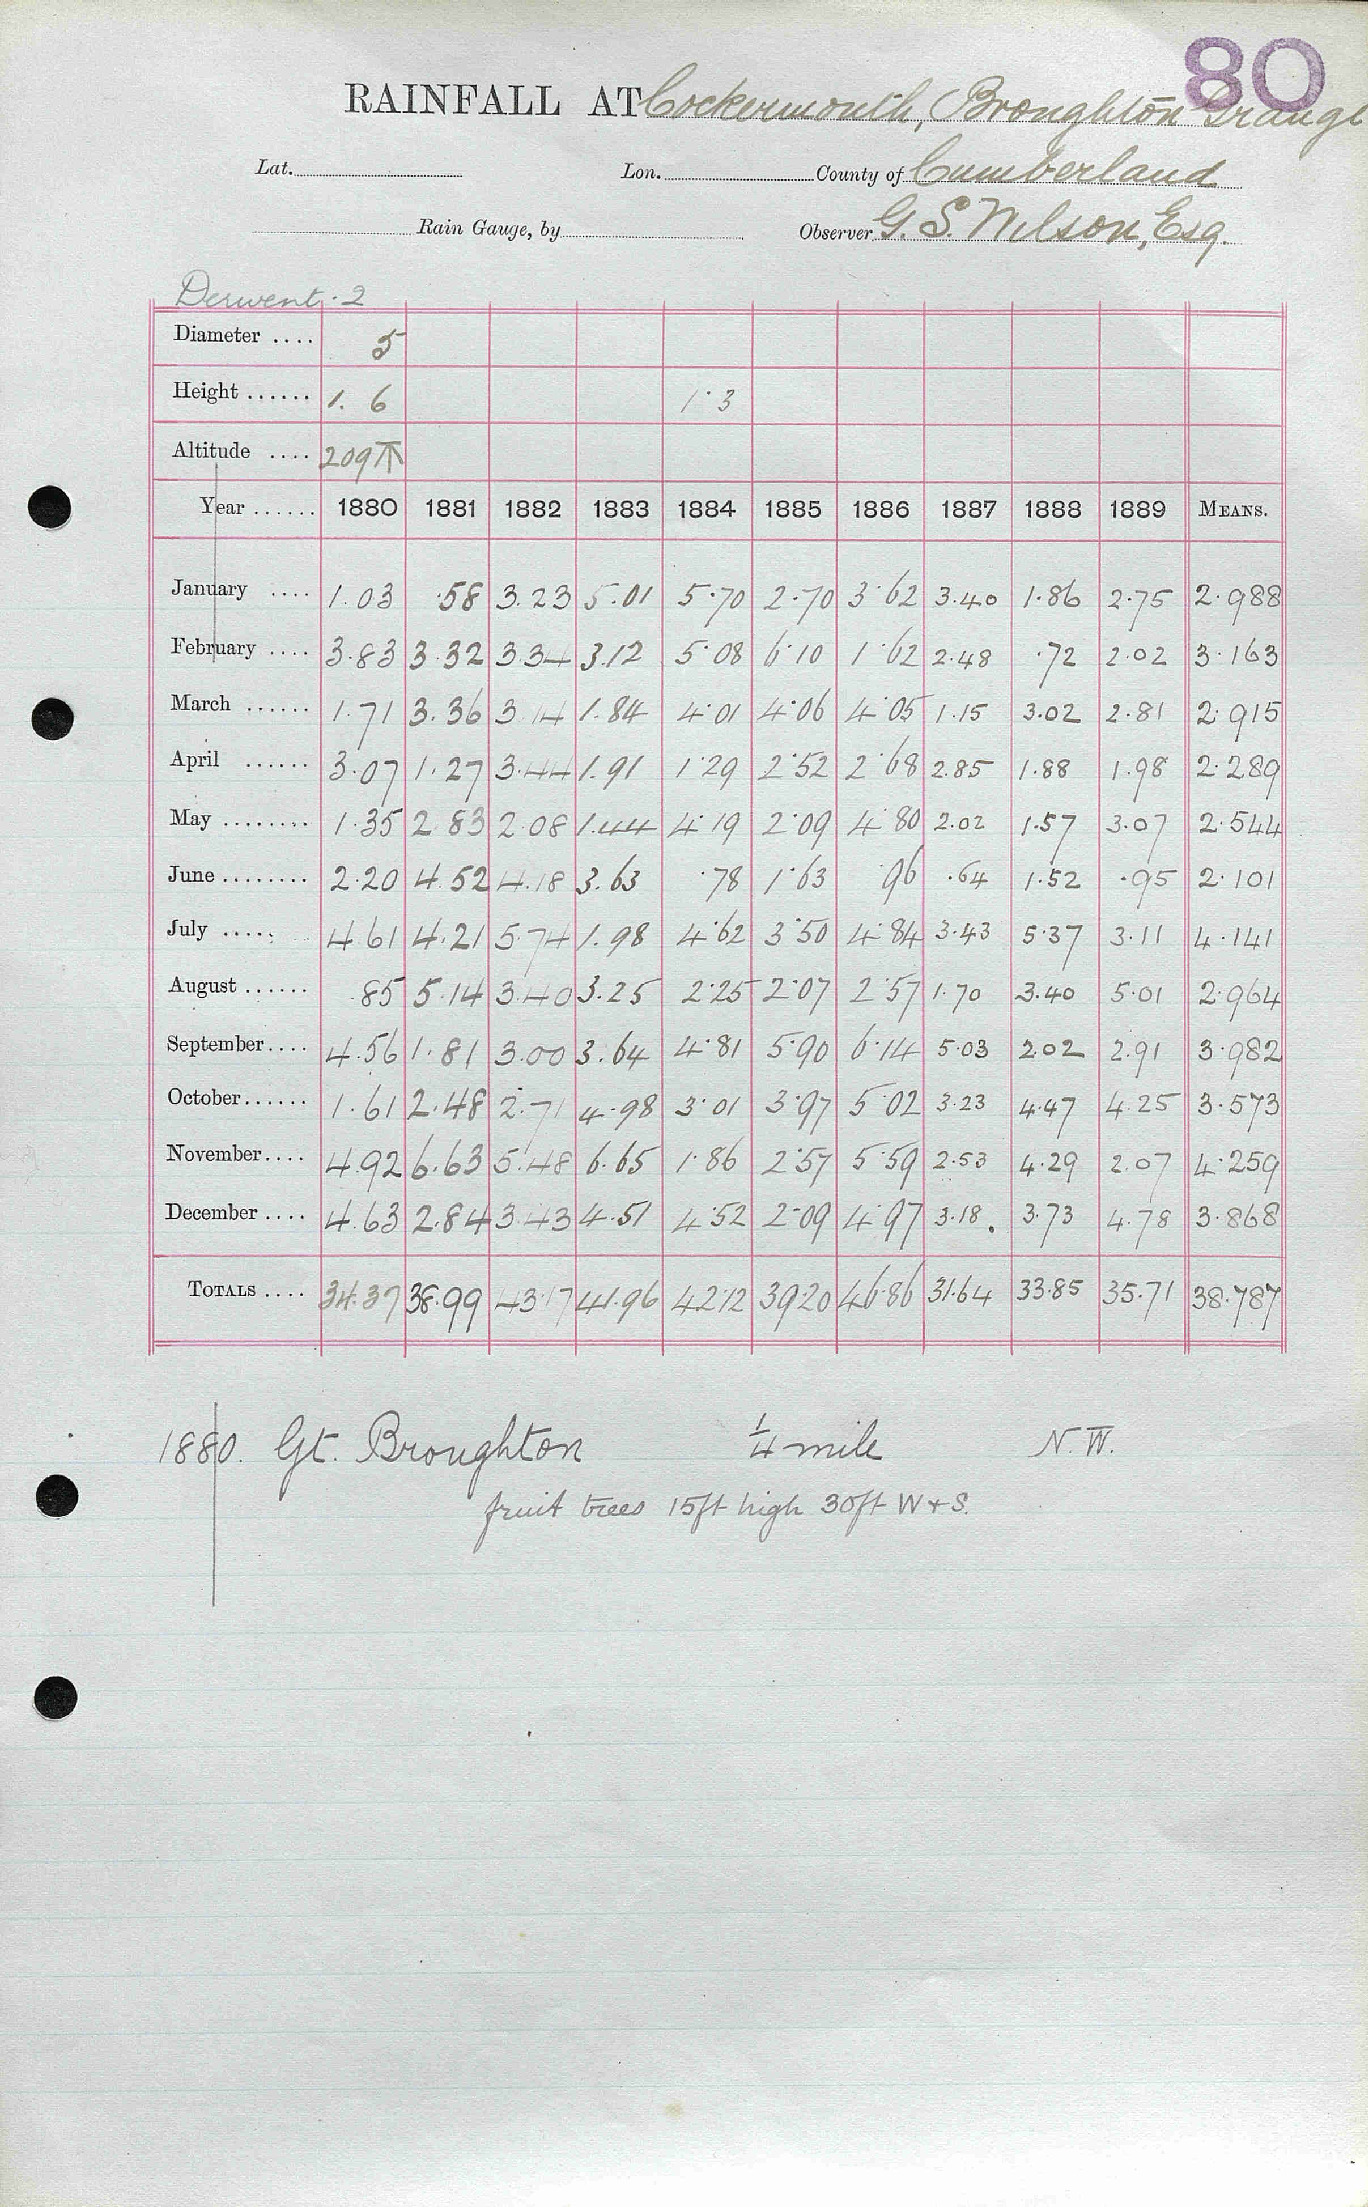 80
RAINFALL AT Cockermouth, Broughton Grange
Lat. Lon. County of Cumberland
Rain Gauge, by Observer G. S. Wilson, Esq.
Derwent. 2
Diameter .... 5
Height ...... 1. 6 1.3
Altitude .... 209 T
Year ...... 1880 1881 1882 1883 1884 1885 1886 1887 1888 1889 MEANS.
January .... 1.03 .58 3.23 5.01 5.70 2.70 3.62 3.40 1.86 2.75 2.988
February .... 3.83 3.32 3.34 3.12 5.08 6.10 1.62 2.48 .72 2.02 3.163
March ...... 1.71 3.36 3.14 1.84 4.01 4.06 4.05 1.15 3.02 2.81 2.915
April ...... 3.07 1.27 3.44 1.91 1.29 2.52 2.68 2.85 1.88 1.98 2.289
May ........ 1.35 2.83 2.08 1.44 4.19 2.09 4.80 2.02 1.57 3.07 2.544
June ........ 2.20 4.52 4.18 3.63 .78 1.63 96 .64 1.52 .95 2.101
July ..... 4.61 4.21 5.74 1.98 4.62 3.50 4.84 3.43 5.37 3.11 4.141
August ...... .85 5.14 3.40 3.25 2.25 2.07 2.57 1.70 3.40 5.01 2.964
September .... 4.56 1.81 3.00 3.64 4.81 5.90 6.14 5.03 2.02 2.91 3.982
October ...... 1.61 2.48 2.71 4.98 3.01 3.97 5.02 3.23 4.47 4.25 3.573
November .... 4.92 6.63 5.48 6.65 1.86 2.57 5.59 2.53 4.29 2.07 4.259
December .... 4.63 2.84 3.43 4.51 4.52 2.09 4.97 3.18. 3.73 4.78 3.868
TOTALS .... 34.37 38.99 43.17 41.96 42.12 39.20 46.86 31.64 33.85 35.71 38.787
1880. Gt. Broughton 1/4 mile N.W.
fruit trees 15ft high 30ft W + S.